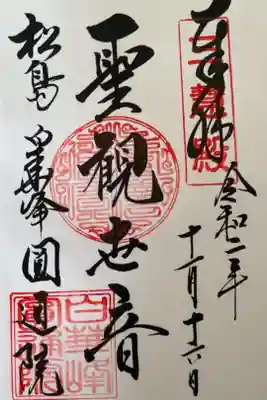 奉拝
令和二年
十一月十六日
聖観世音
松島
白華峰圓通院
三慧殿
白華峰
圓通院